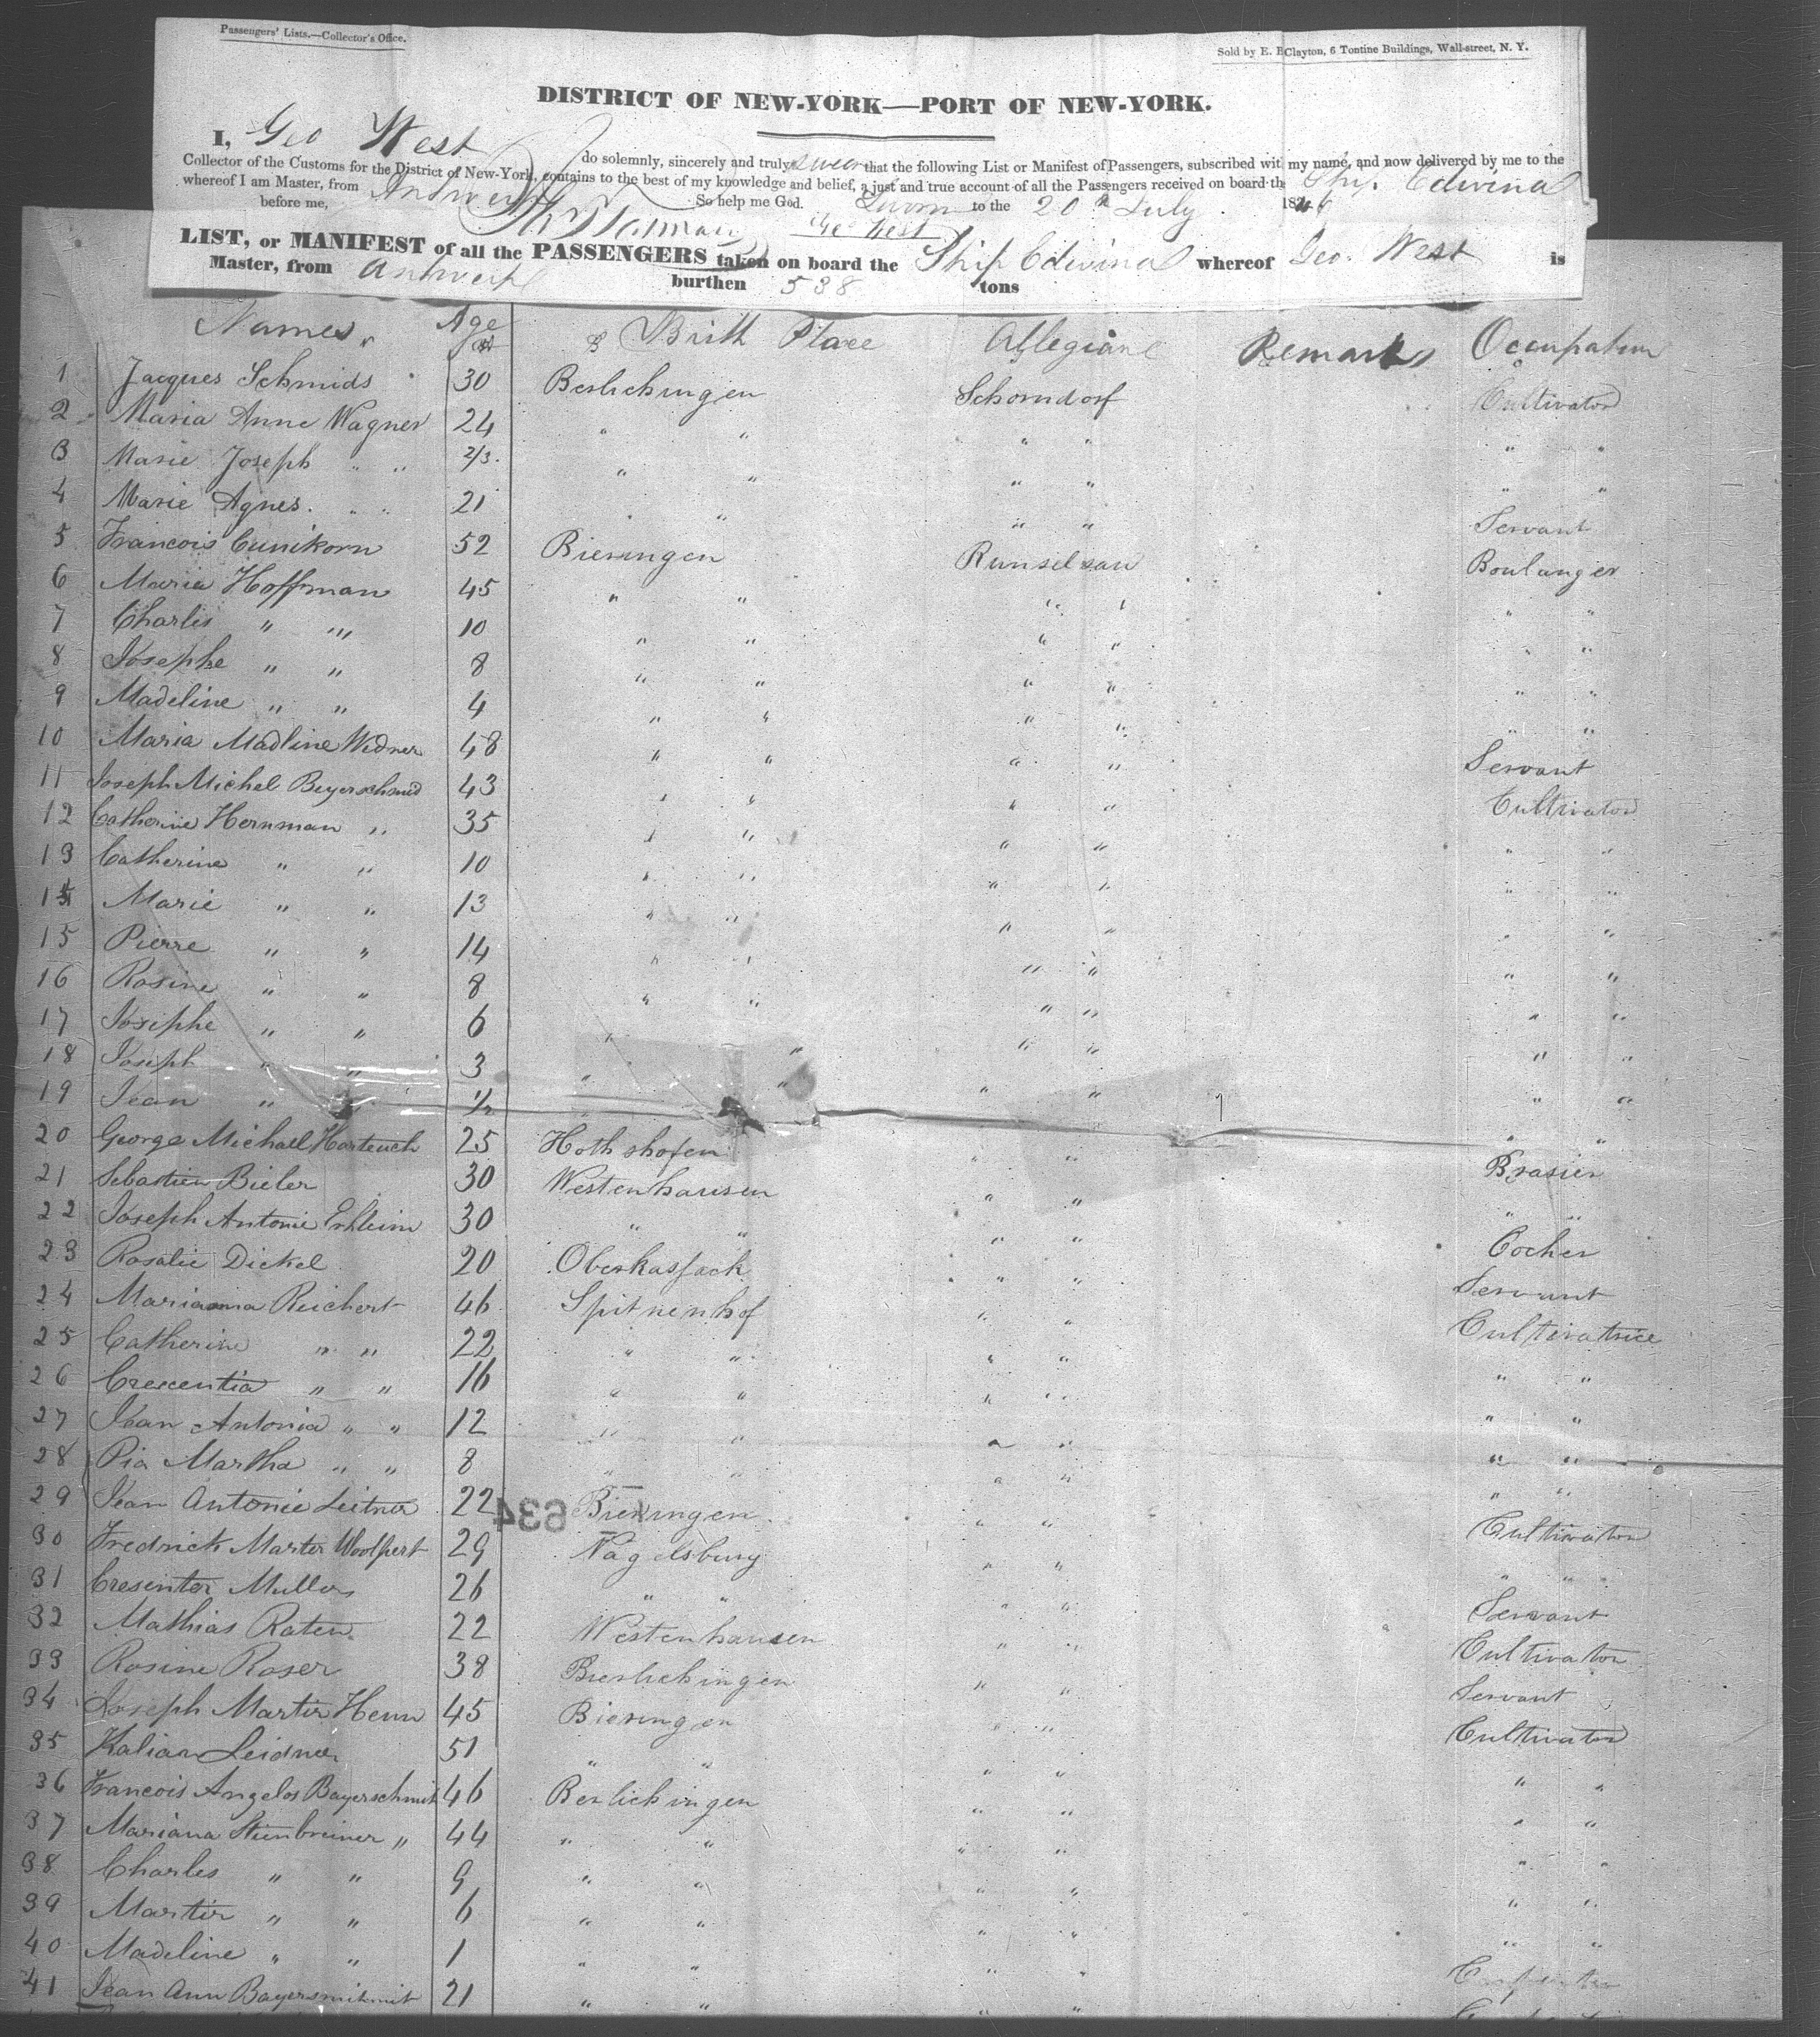 Passengers' Lists.—Collector's Office.
Sold by E. B Clayton, 6 Tontine Buildings, Wall-street, N. Y.
DISTRICT OF NEW-YORK—PORT OF NEW-YORK.
I, Geo West do solemnly, sincerely and truly swear that the following List or Manifest of Passengers, subscribed wit my name, and now delivered by me to the
Collector of the Customs for the District of New-York, contains to the best of my knowledge and belief, a just and true account of all the Passengers received on board th Ship Edwina
whereof I am Master, from Antwerp So help me God.
Sworn to the 20th July 1846
before me, Geo West
LIST, or MANIFEST of all the PASSENGERS taken on board the Ship Edwina whereof Geo. West is
Master, from Antwerp burthen 538 tons
Names Age Birth Place Allegiance Remarks Occupation
1 Jacques Schmids 30 Berlichingen Schorndorf Cultivator
2 Maria Anne Wagner 24 " " " " " "
3 Marie Joseph " " 2/3 " " " " " "
4 Marie Agnes " " 21 " " " " Servant
5 Francois Cunikorn 52 Bieringen Runselsau Boulanger
6 Maria Hoffman 45 " " " " " "
7 Charles " " 10 " " " " " "
8 Josephe " " 8 " " " " " "
9 Madeline " " 4 " " " " " "
10 Maria Madline Widner 48 " " " " Servant
11 Joseph Michel Beyerschmid 43 " " " " Cultivator
12 Catherine Hernman " 35 " " " " " "
13 Catherine " " 10 " " " " " "
14 Marie " " 13 " " " " " "
15 Pierre " " 14 " " " " " "
16 Rosine " " 8 " " " " " "
17 Josiphe " " 6 " " " " " "
18 Joseph " " 3 " " " " " "
19 Jean " " 1/2 " " " " " "
20 George Michael Harteuch 25 Hoth shofen " " Brasier
21 Sebastien Bieler 30 Westenhausen " " " "
22 Joseph Antonie Erhleim 30 " " " " Cocher
23 Rosalie Dickel 20 Oberkassach " " Servant
24 Marianna Reichert 46 Spitnenhof " " Cultivatrice
25 Catherine " " 22 " " " " " "
26 Crescentia " " 16 " " " " " "
27 Jean Antonia " " 12 " " " " " "
28 Pia Martha " " 8 " " " " " "
29 Jean Antonie Leitner 22 Bieringen " " Cultivator
634
30 Fredrick Martir Woolpert 29 Nagelsburg " " " "
31 Cresenter Muller 26 " " " " Servant
32 Mathias Raten 22 Westenhausen " " Cultivator
33 Rosine Roser 38 Bierlichingen " " Servant
34 Joseph Martir Henn 45 Bieringen " " Cultivator
35 Kalian Leidner 51 " " " " " "
36 Francois Angelos Bayerschmit 46 Berlichingen " " " "
37 Mariana Stienbreiner " 44 " " " " " "
38 Charles " " 9 " " " " " "
39 Martir " " 6 " " " " " "
40 Madeline " " 1 " " " "
41 Jean Ann Bayersmihmit 21 " " " "